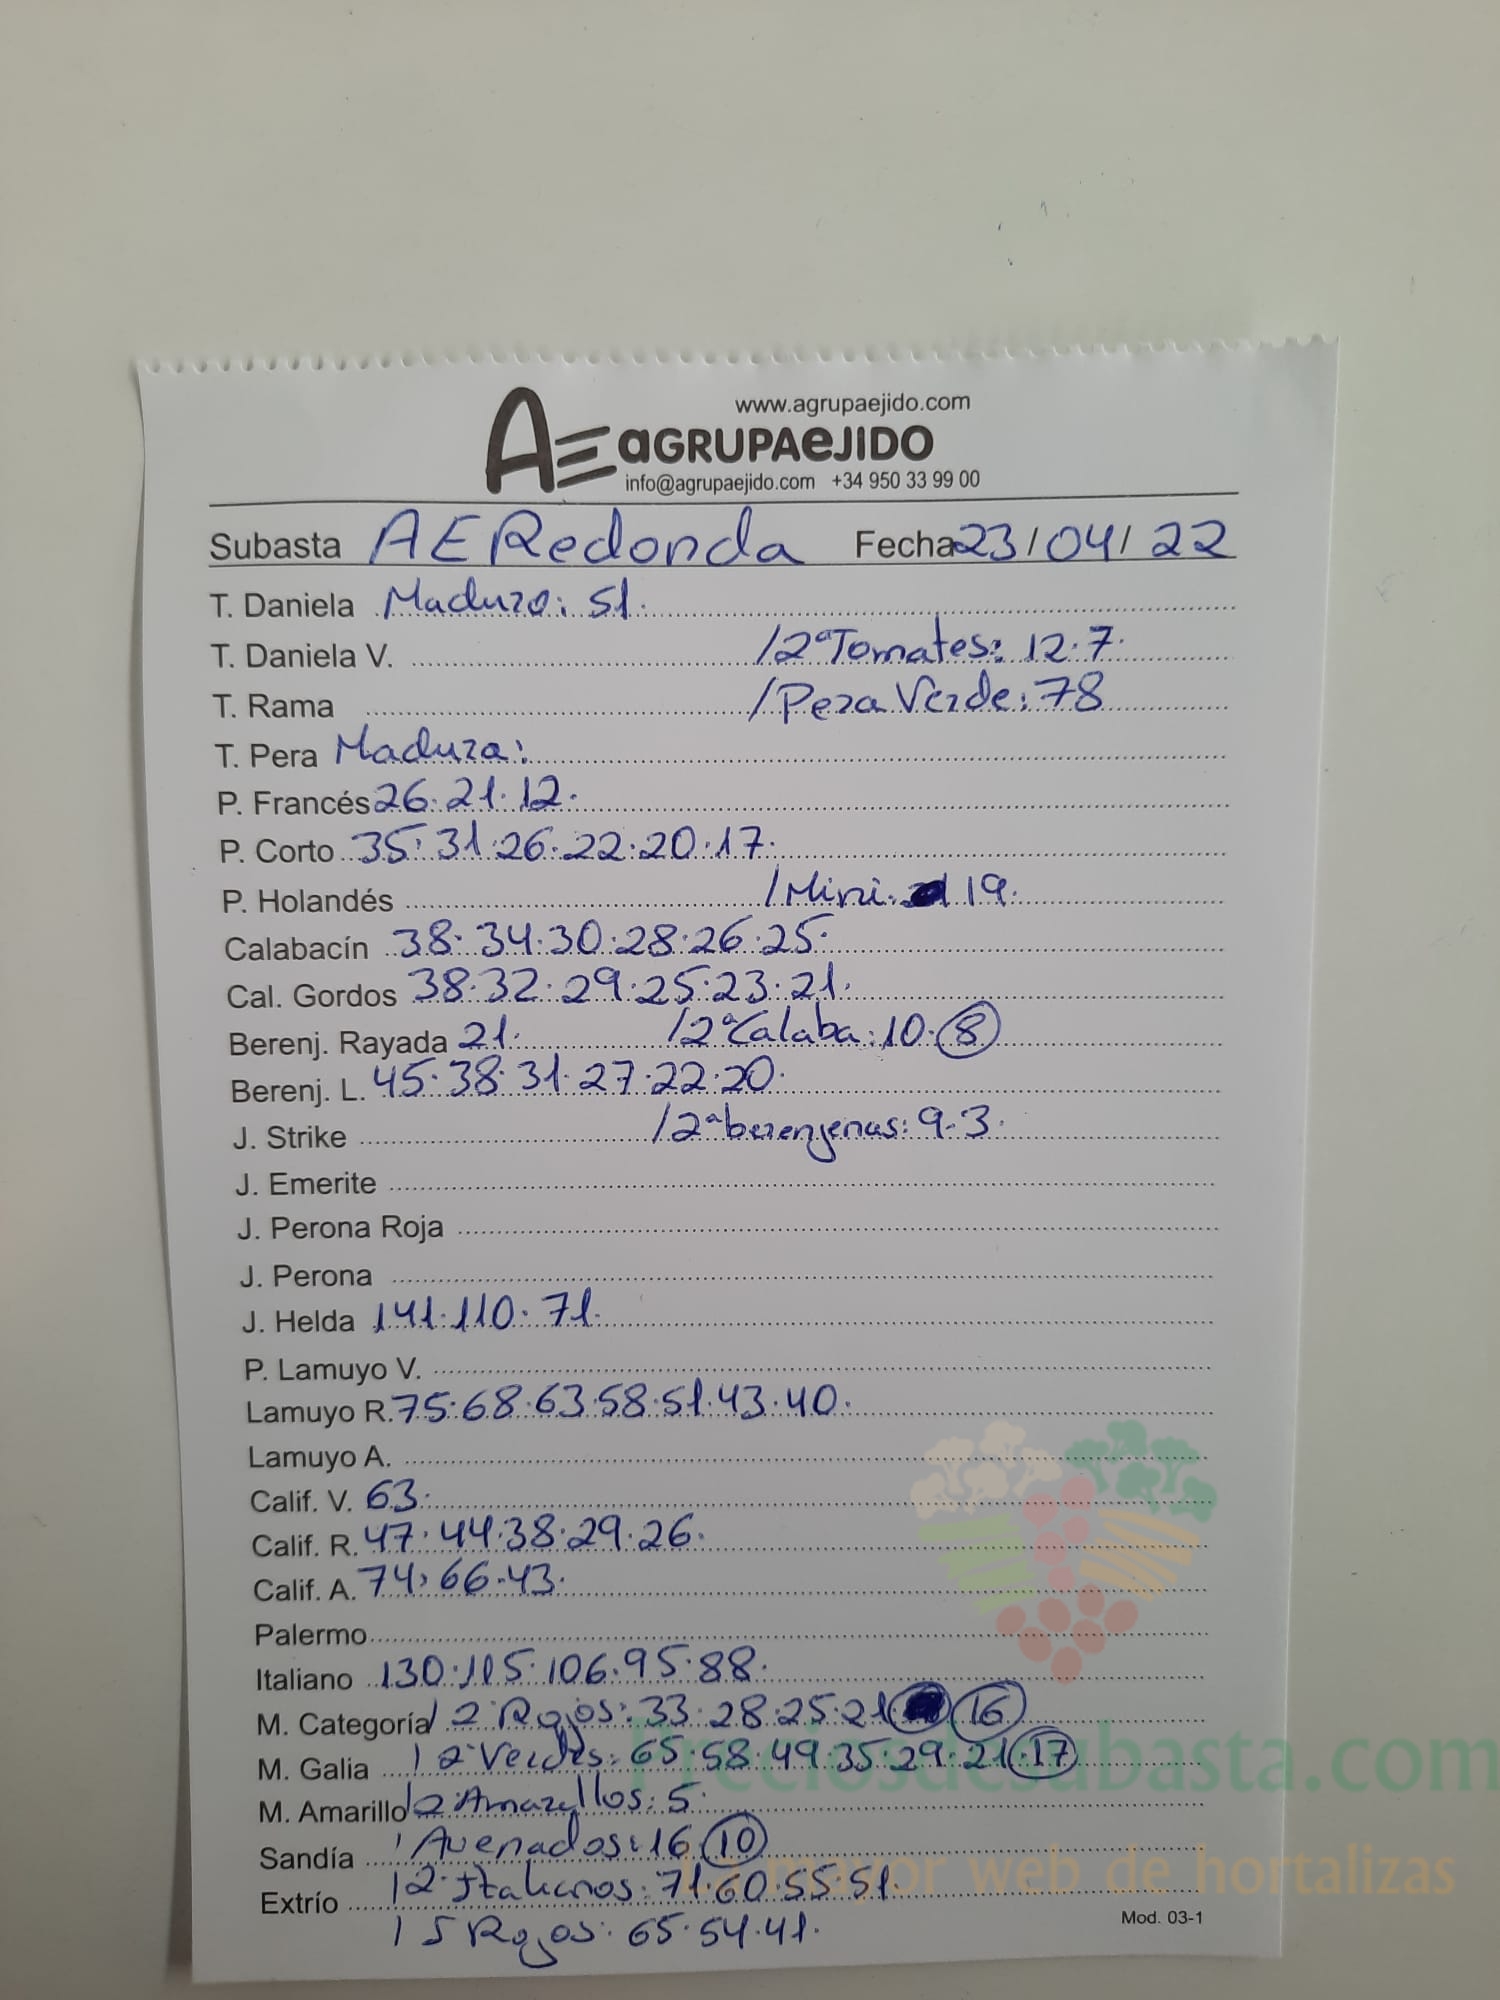 www.agrupaejido.com
AE aGRUPAeJIDO
info@agrupaejido.com +34 950 33 99 00
Subasta AE Redonda Fecha 23/04/22
T. Daniela Maduro: 51.
T. Daniela V. /2ªTomates: 12.7.
T. Rama /Pera Verde: 78
T. Pera Madura:
P. Francés 26.21.12.
P. Corto 35.31.26.22.20.17.
P. Holandés /Mini. 19.
Calabacín 38.34.30.28.26.25.
Cal. Gordos 38.32.29.25.23.21.
Berenj. Rayada 21. /2ªCalaba: 10. 8
Berenj. L. 45.38.31.27.22.20.
J. Strike /2ªberenjenas: 9.3.
J. Emerite
J. Perona Roja
J. Perona
J. Helda 141.110.71.
P. Lamuyo V.
Lamuyo R. 75.68.63.58.51.43.40.
Lamuyo A.
Calif. V. 63.
Calif. R. 47.44.38.29.26.
Calif. A. 74.66.43.
Palermo
Italiano 130.115.106.95.88.
M. Categoría / 2ªRojos: 33.28.25.21 16
M. Galia / 2ªVerdes: 65.58.49.35.29.21.17
M. Amarillo / 2ªAmarillos: 5.
Sandía / Avenados: 16. 10
Extrío / 2ªItalianos: 71.60.55.51.
/ 5 Rojos: 65.54.41.
Mod. 03-1
Preciosdesubasta.com
La mayor web de hortalizas